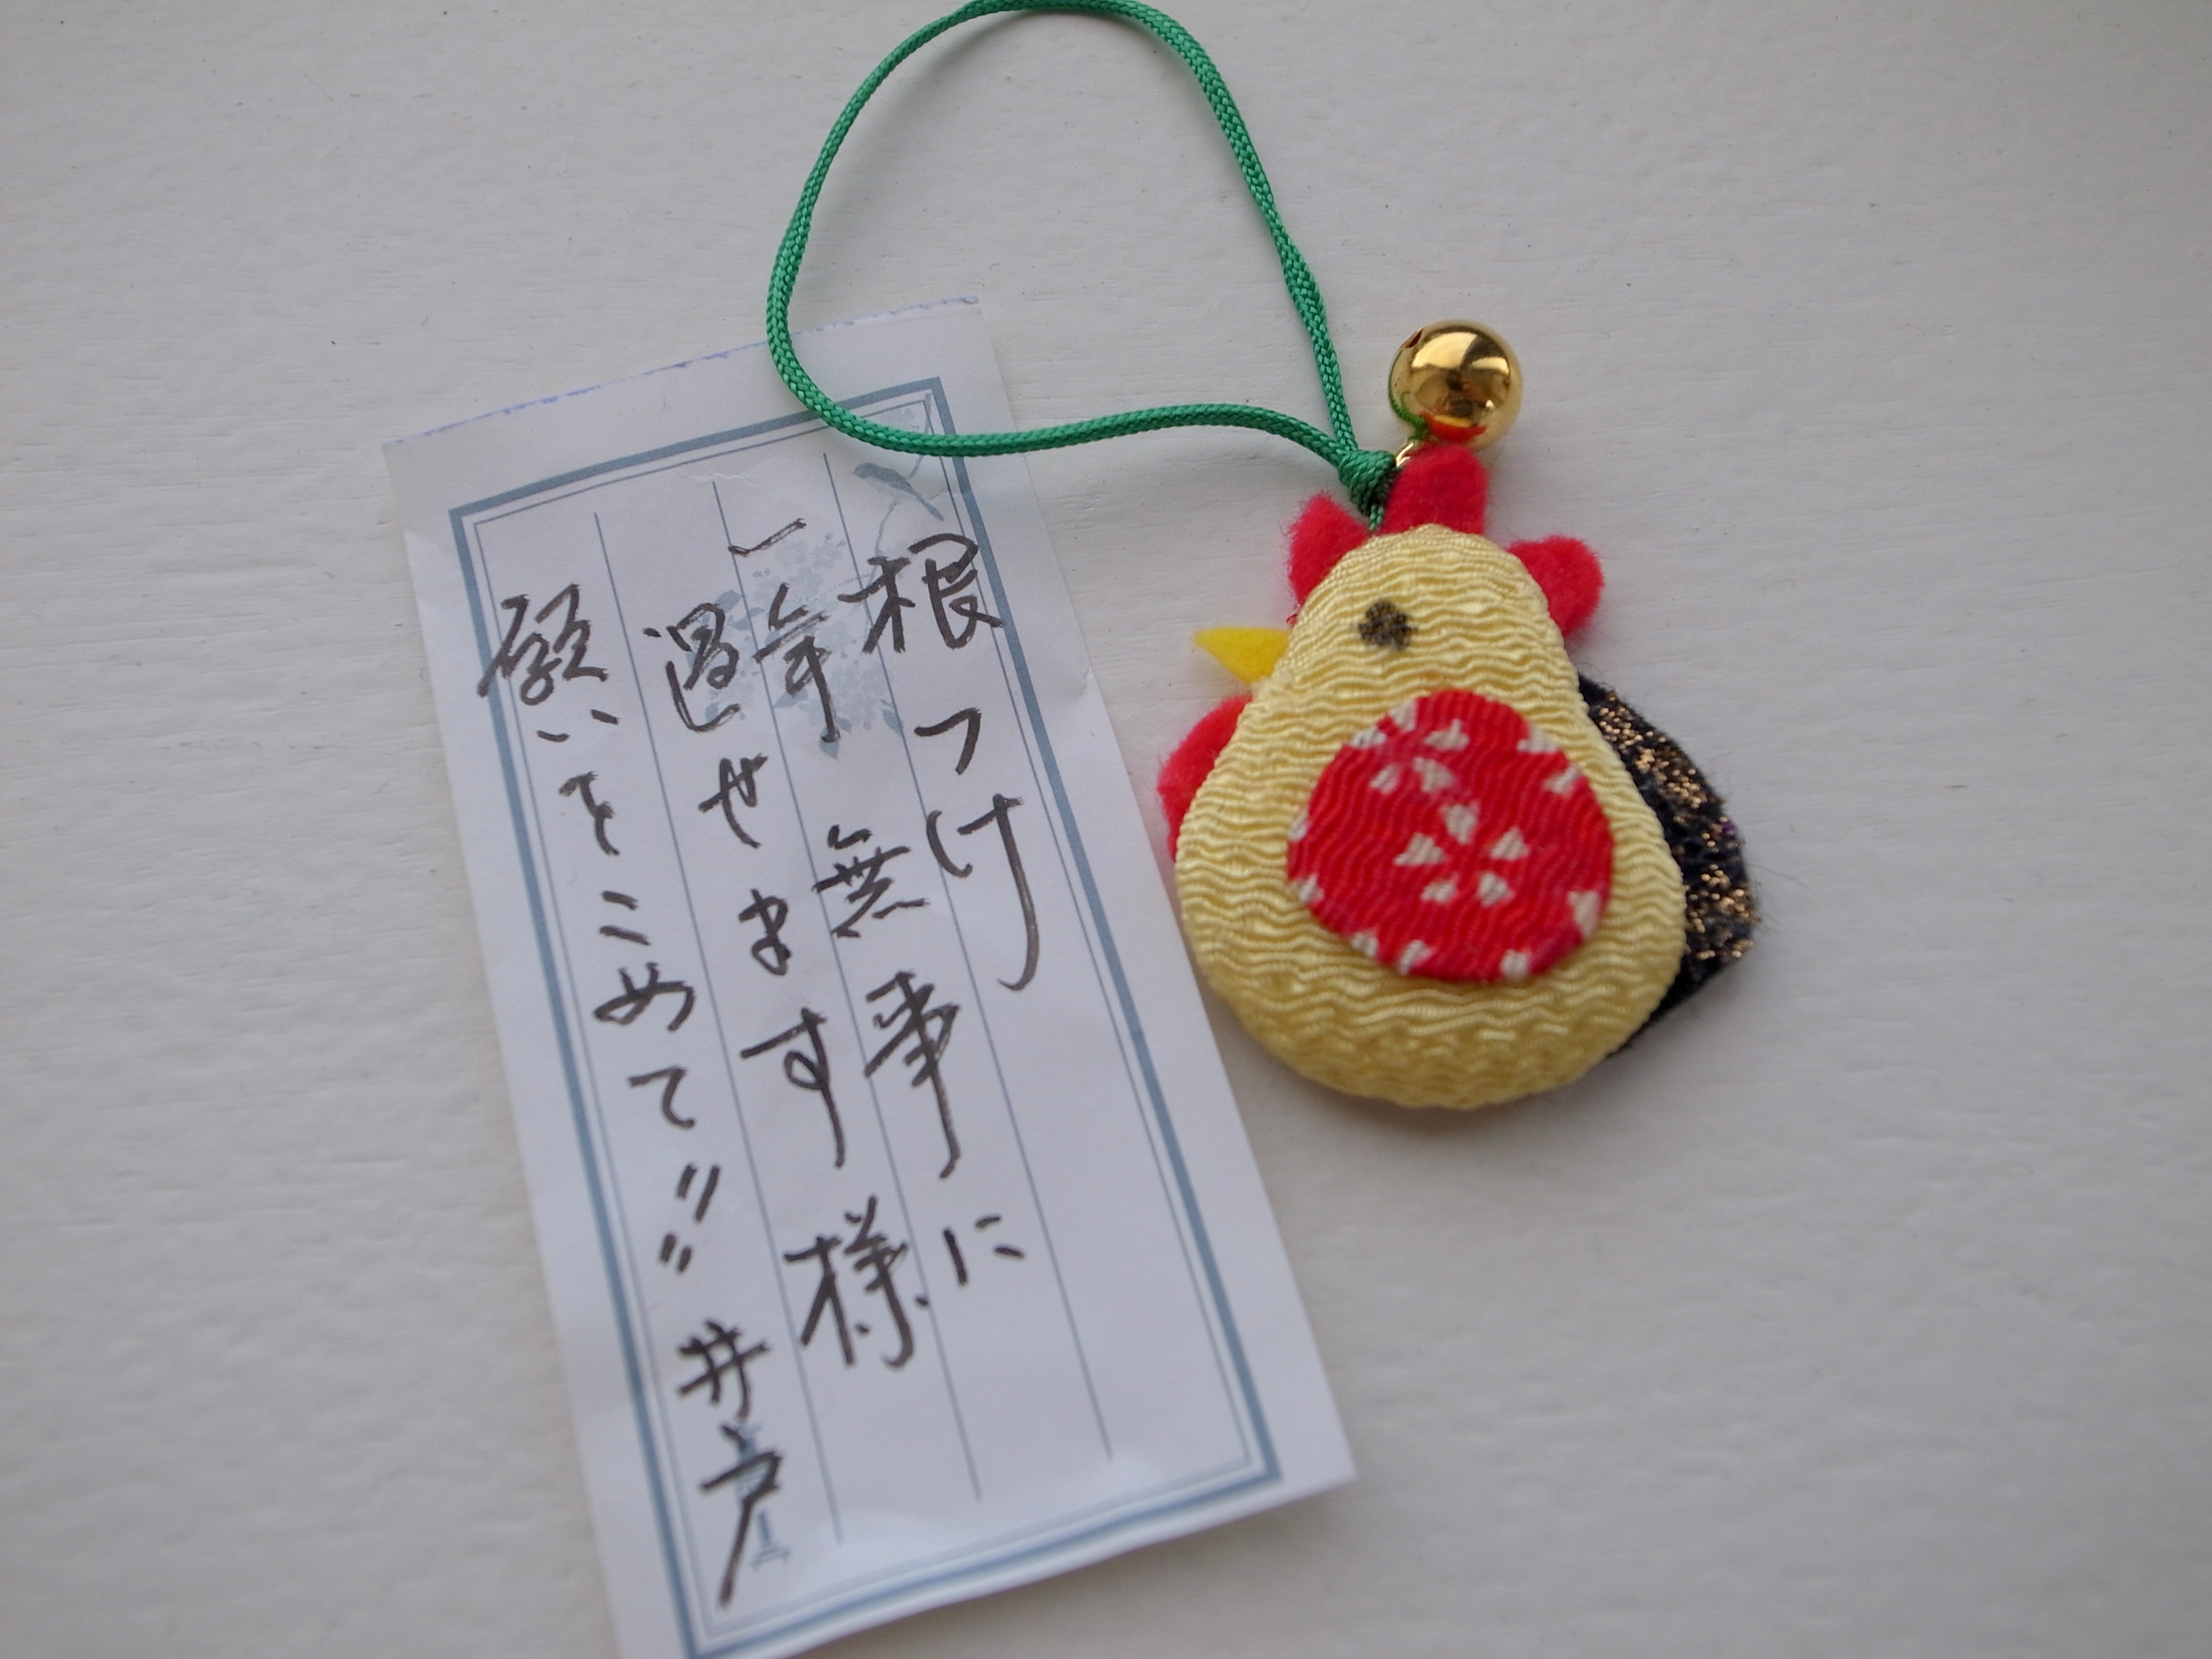 根つけ
一年無事に
過せます様
願いをこめて〃〃 井戸